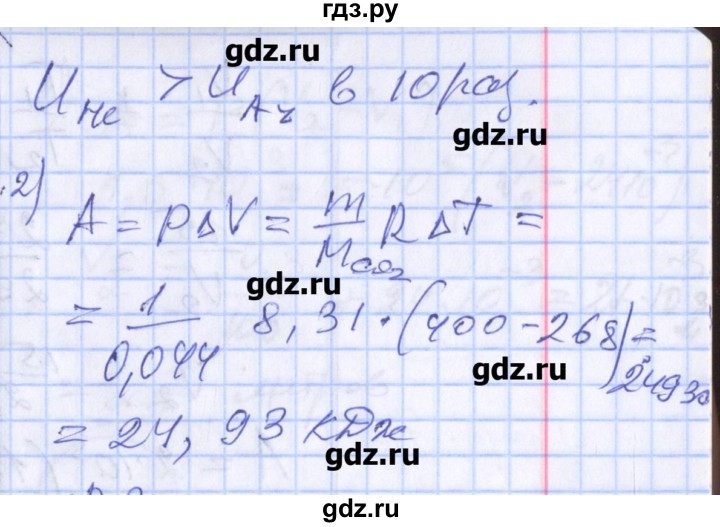 гдз.ру
gdz.ru
U_He > U_Ar в 10 раз.
gdz.ru
2) A = PΔV = m/M_CO2 RΔT =
gdz.ru
= 1/0,044 8,31·(400-268) =
gdz.ru
24930
= 24,93 кДж
gdz.ru
gdz.ru